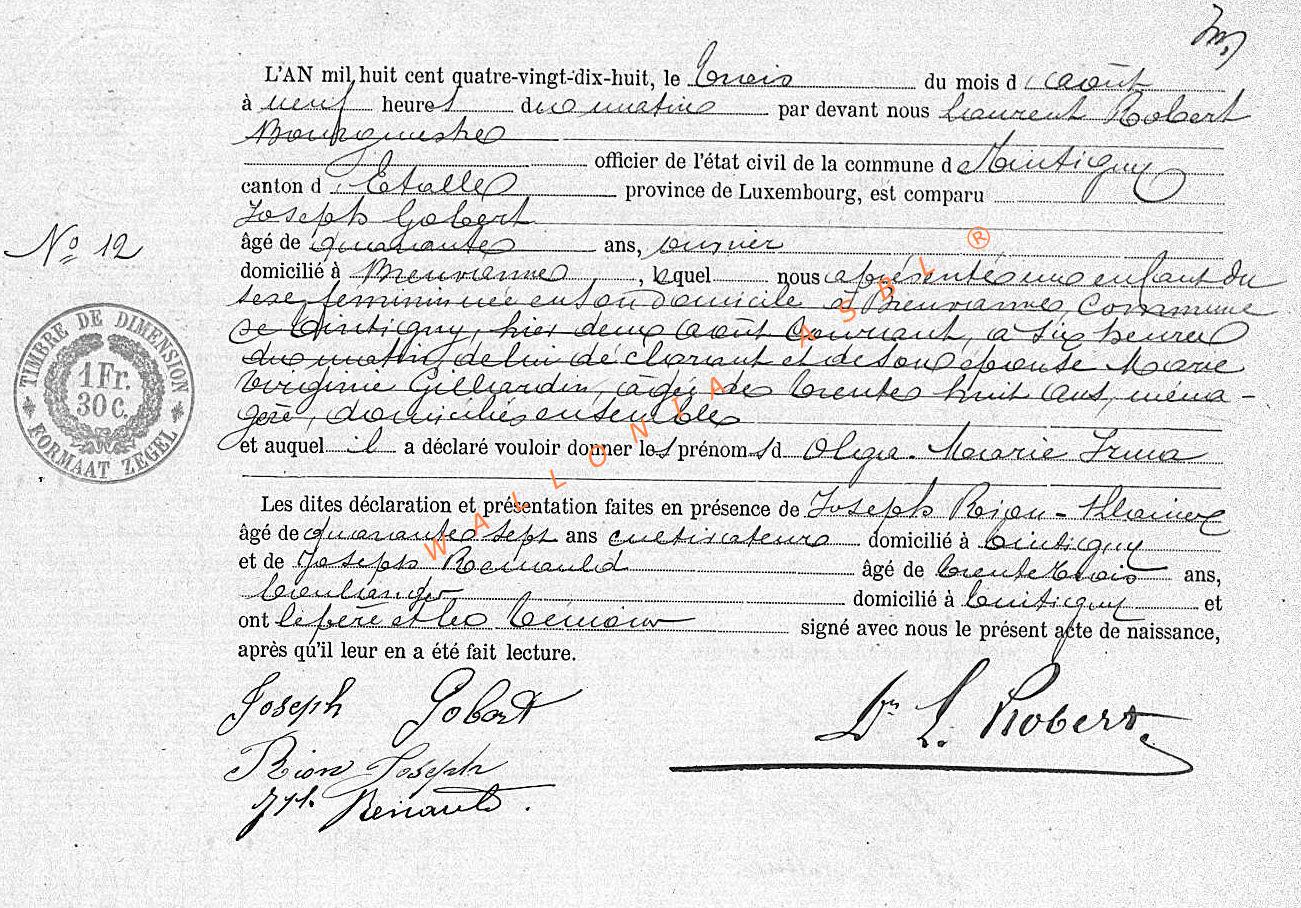 L'AN mil huit cent quatre-vingt-dix-huit, le trois du mois d'août
à neuf heures du matin par devant nous Laurent Robert
Bourgmestre
officier de l'état civil de la commune d Tintigny
canton d'Etalle province de Luxembourg, est comparu
Joseph Gobert
N° 12
âgé de quarante ans, ouvrier
domicilié à Breuvanne, lequel nous a présenté un enfant du
sexe féminin née en son domicile à Breuvanne, Commune
de Tintigny, hier deux août courant, à six heures
du matin, de lui déclarant et de son épouse Marie
Virginie Gilliardin, âgée de trente huit ans, ména-
gère, domiciliés ensemble
et auquel il a déclaré vouloir donner les prénoms d Olga Marie Irma
Les dites déclaration et présentation faites en présence de Joseph Rion-
âgé de quarante sept ans cultivateur domicilié à Tintigny
et de Joseph Renauld âgé de trente trois ans,
boulanger domicilié à Tintigny et
ont le père et les témoins signé avec nous le présent acte de naissance,
après qu'il leur en a été fait lecture.
Joseph Gobert
Dr L. Robert.
Rion Joseph
Jh. Renauld.
TIMBRE DE DIMENSION
1 Fr.
30 C.
FORMAAT ZEGEL
WALLONIA ASBL ®